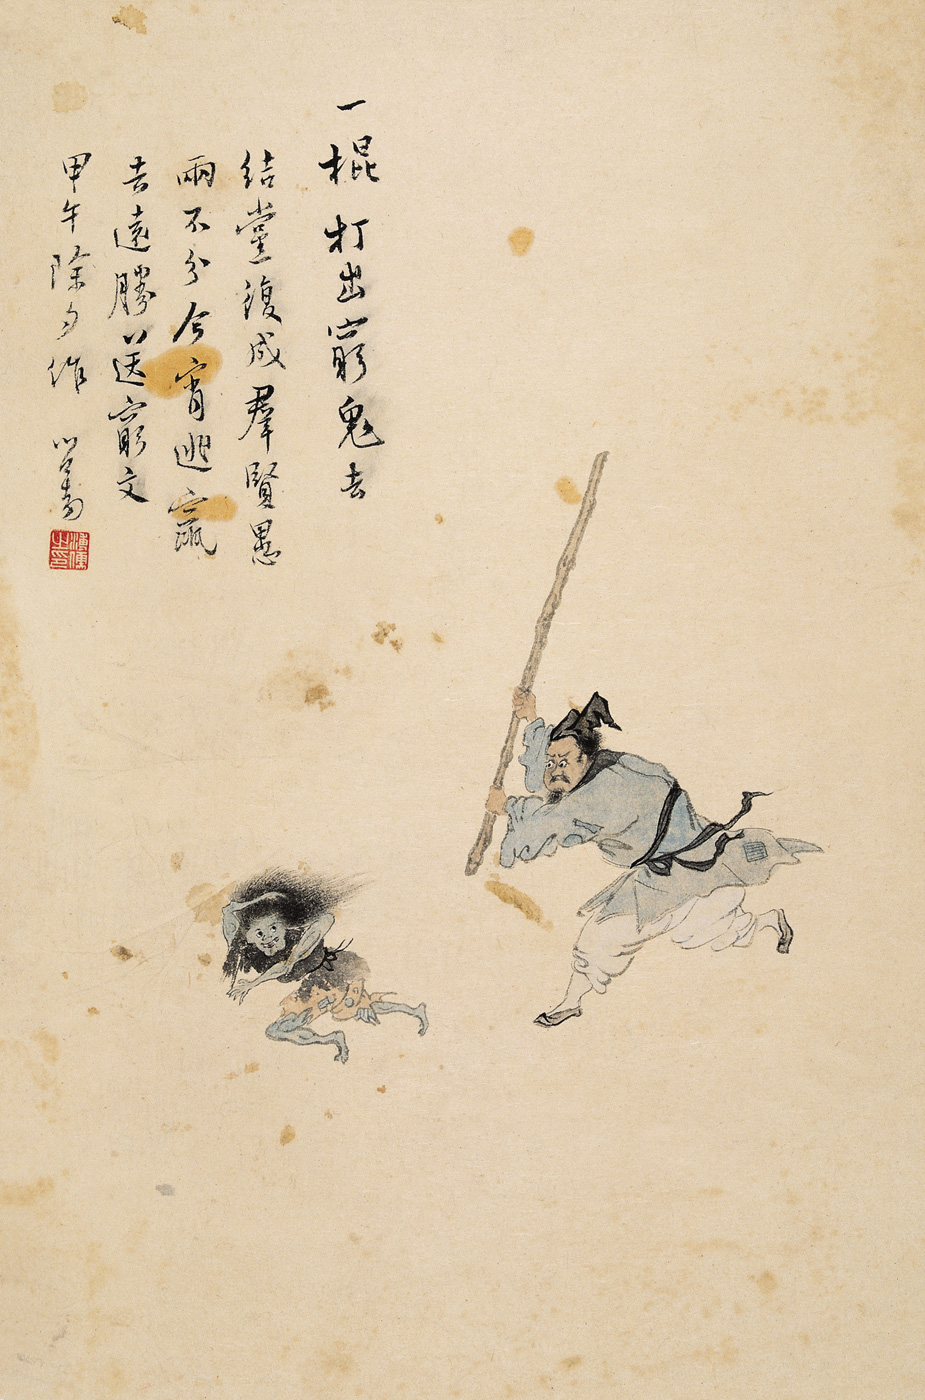 一棍打出窮鬼去
結黨復成羣賢愚
兩不分今宵逃竄
去遠勝送窮文
甲午除夕作 心畬
溥儒之印